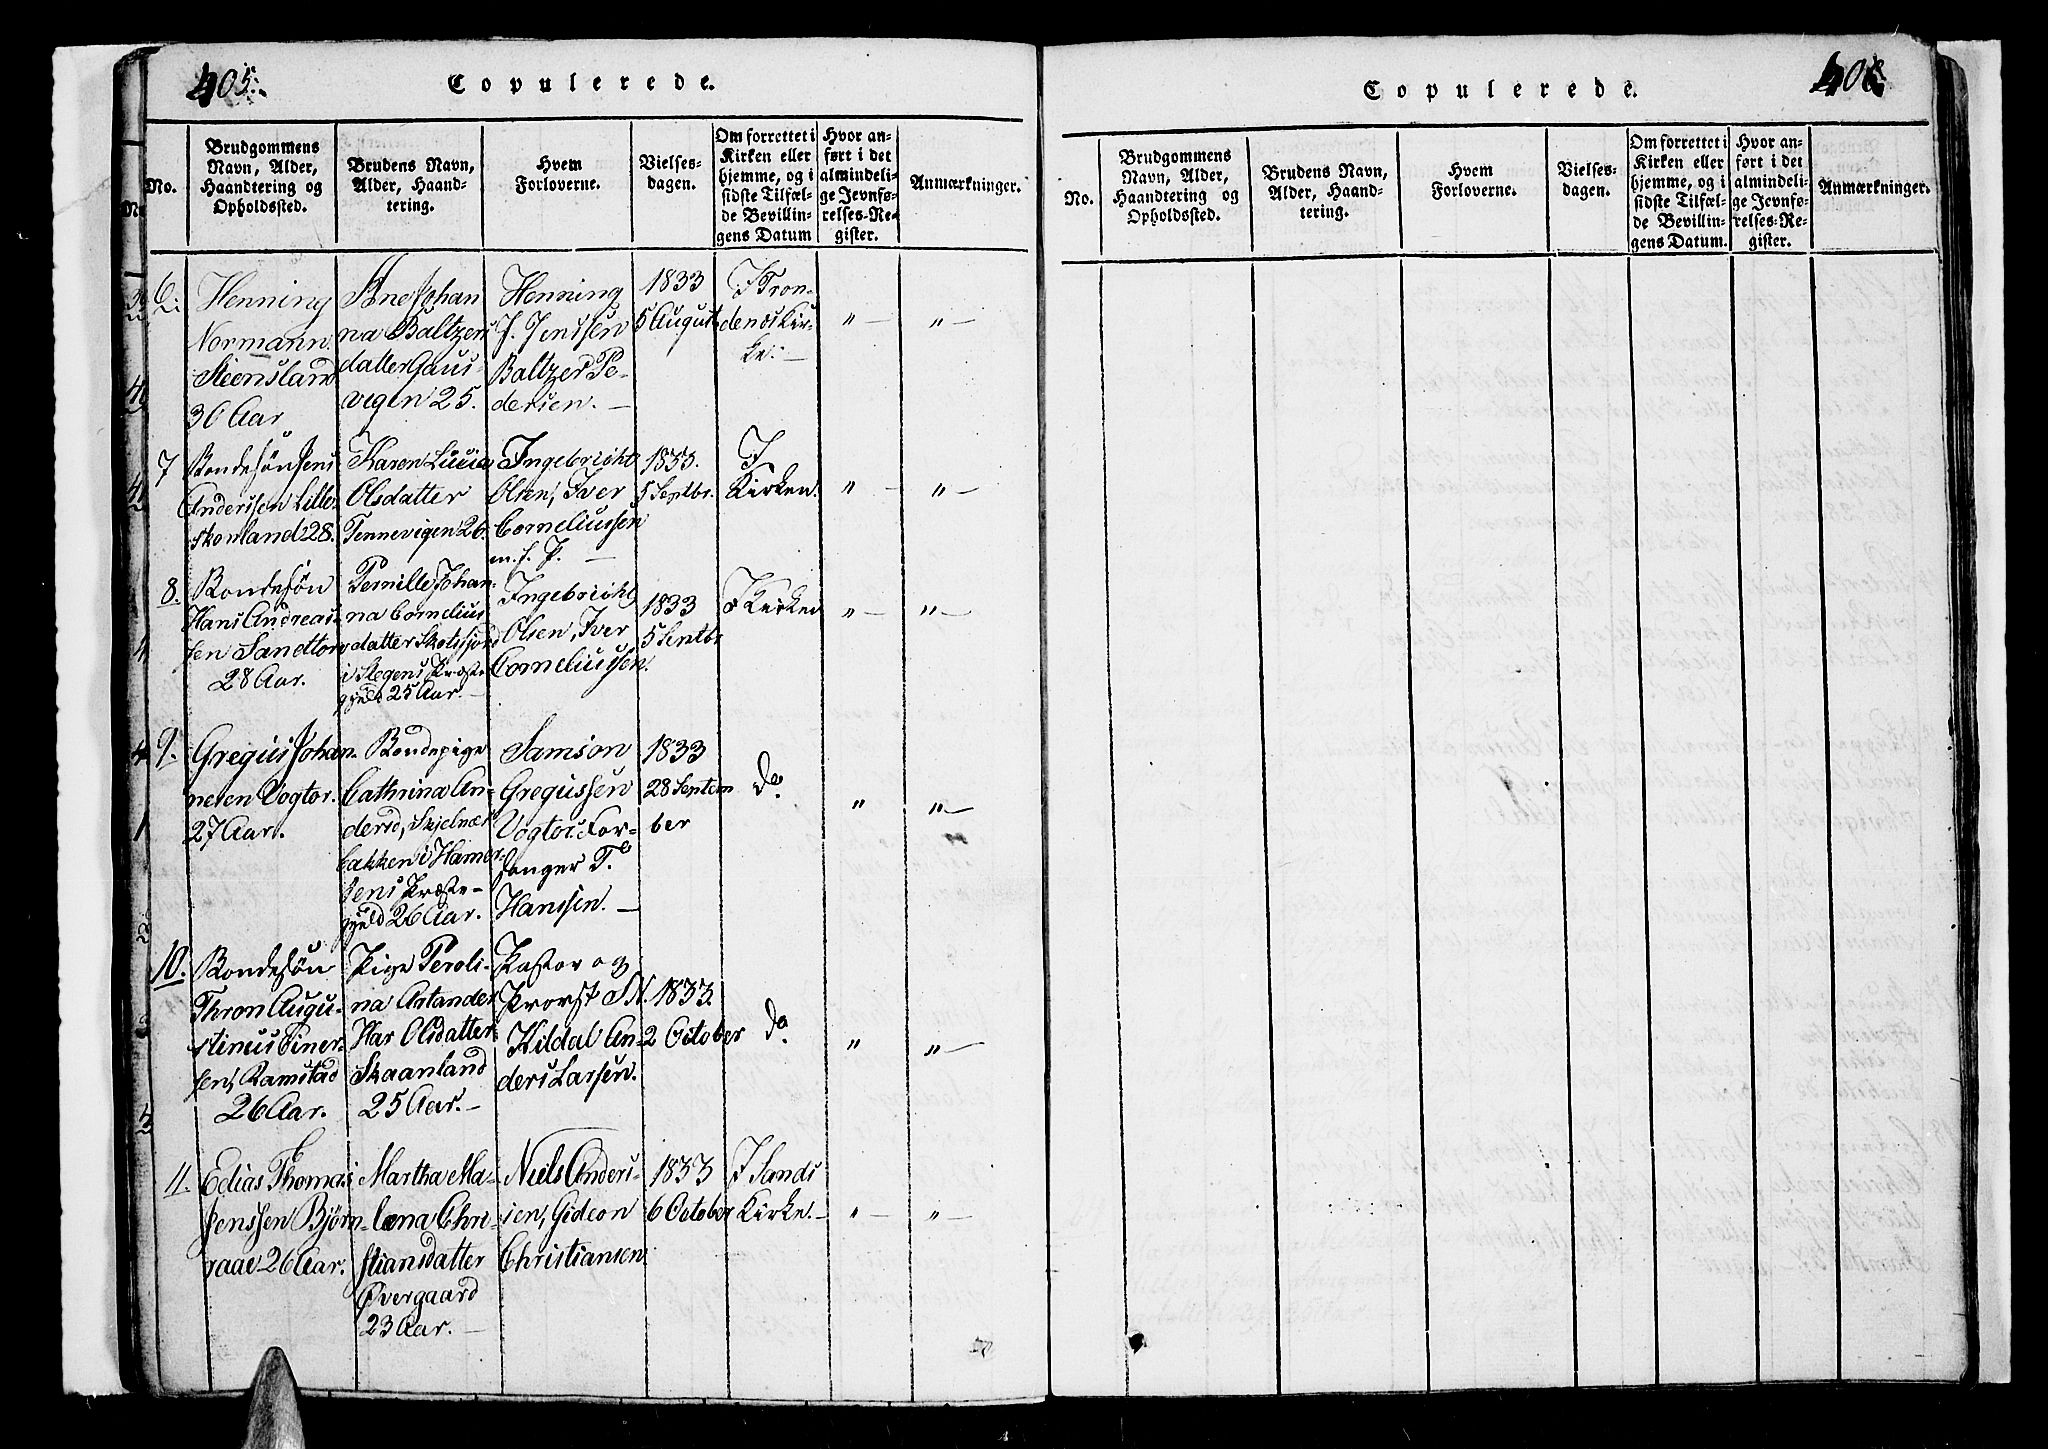 405.
Copulerede.
No.
Brudgommens
Navn, Alder,
Haandtering og
Opholdssted.
Brudens Navn,
Alder, Haand-
tering.
Hvem
Forloverne.
Vielses-
dagen.
Om forrettet i
Kirken eller
hjemme, og i
sidste Tilfæl-
de Bevillin-
gens Datum
Hvor an-
ført i det
almindeli-
ge Jevnfø-
relses-Re-
gister.
Anmærkninger.
6.
Henning
Normann
Steensland
30 Aar
Ane Johan
na Baltzers
datter Gaus-
vigen 25.
Henning
J. Jenssen
Baltzer Pe-
dersen. —
1833
5 August
I Tron-
denæs Kir-
ke. —
" —
" —
7
Bondesøn Jens
Anderssen Lille-
skonland 28.
Karen Lucia
Olsdatter
Tennevigen 26.
Ingebricht
Olsen, Iver
Corneliussen
m. f. P. —
1833.
5 Septbr.
I
Kirken.
" —
" —
8.
Bondesøn
Hans Andreas-
sen Sandtorv
28 Aar.
Pernille Johan-
na Cornelius
datter Skotsfjord
i Stegens Præste-
gjeld 25 Aar. —
Ingebricht
Olsen, Iver
Corneliussen.
1833
5 Septbr
I Kirken
" —
" —
9.
Gregus Johan-
nesen Vogtor.
27 Aar.
Bondepige
Cathrina An-
dersd, Skjelnæs
bakken i Hamer-
sens Præste-
gjeld 26 Aar.
Samson
Gregussen
Vogtor. For-
sanger T.
Hanssen. —
1833
28 Septem
ber
do.
"
" —
10.
Bondesøn
Thron Augu-
stinus Einer-
sen, Ramstad
26 Aar.
Pige Peroli-
na Astander
Har Olsdatter
Skaanland
25 Aar. —
Pastor og
Provst S N.
Kildal An-
ders Larsen.
1833.
2 October
do.
"
" —
11.
Edias Thomas
Jenssen Bjørn-
raae 26 Aar.
Martha Ma-
læna Chri-
stiansdatter
Øvergaard
23 Aar. —
Niels Anders-
sen, Gideon
Christiansen
1833
6 October
I Sands
Kirke. —
" —
" —
406.
Copulerede.
No.
Brudgommens
Navn, Alder,
Haandtering og
Opholdssted.
Brudens Navn,
Alder, Haand-
tering.
Hvem
Forloverne.
Vielses-
dagen.
Om forrettet i
Kirken eller
hjemme, og i
sidste Tilfæl-
de Bevillin-
gens Datum.
Hvor an-
ført i det
almindeli-
ge Jevnfø-
relses-Re-
gister.
Anmærkninger.